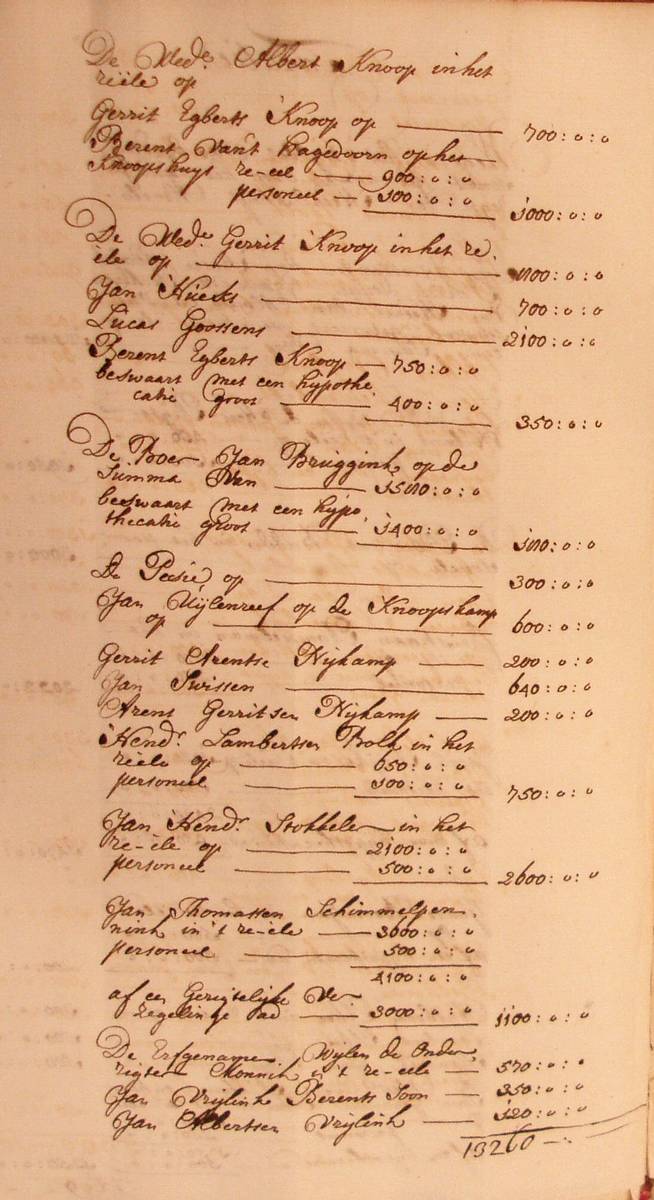 De Wed.e Albert Knoop in het
reële op
Gerrit Egberts Knoop op — 700:0:0
Berent Van't Hagedoorn op het
Knoopshuys re-eel — 900:0:0
personeel — 100:0:0
1000:0:0
De Wed.e Gerrit Knoop in het re
ële op — 1100:0:0
Jan Huecks — 700:0:0
Lucas Goossens — 2100:0:0
Berent Egberts Knoop — 750:0:0
beswaart met een hypothe
catie groot — 400:0:0
350:0:0
De Boer Jan Bruggink op de
Summa van — 1500:0:0
beeswaart met een hypo
thecatie groot — 1400:0:0
100:0:0
De Pasië op — 300:0:0
Jan Uijlenreef op de Knoopskamp
op — 600:0:0
Gerrit Arentse Nijkamp — 200:0:0
Jan Swissen — 640:0:0
Arent Gerritsen Nijkamp — 200:0:0
Hend.r Lambertsen Bolk in het
reële op — 650:0:0
personeel — 100:0:0
750:0:0
Jan Hend.r Stokkeler in het
re-ële op — 2100:0:0
personeel — 500:0:0
2600:0:0
Jan Thomassen Schimmelpen
nink in't re-ële — 3600:0:0
personeel — 500:0:0
4100:0:0
af een Gerigtelijke Ve
regelinge ad — 3000:0:0
1100:0:0
De Erfgenamen Wijlen de Onder
rigter Monnik in't re-ële — 570:0:0
Jan Vrijlink Berents Soon — 350:0:0
Jan Albertsen Vrijlink — 120:0:0
13260 —